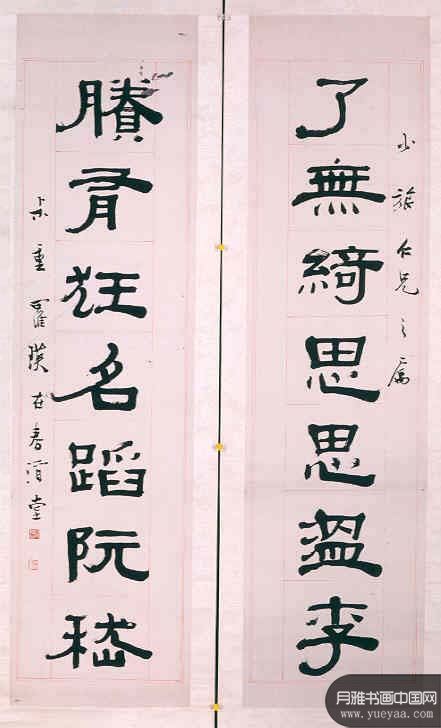 了無綺思思溫李
仁兄之屬
賸有狂名蹈阮嵇
羅瑛
堂
月雅书画中国网
www.yueyaa.com